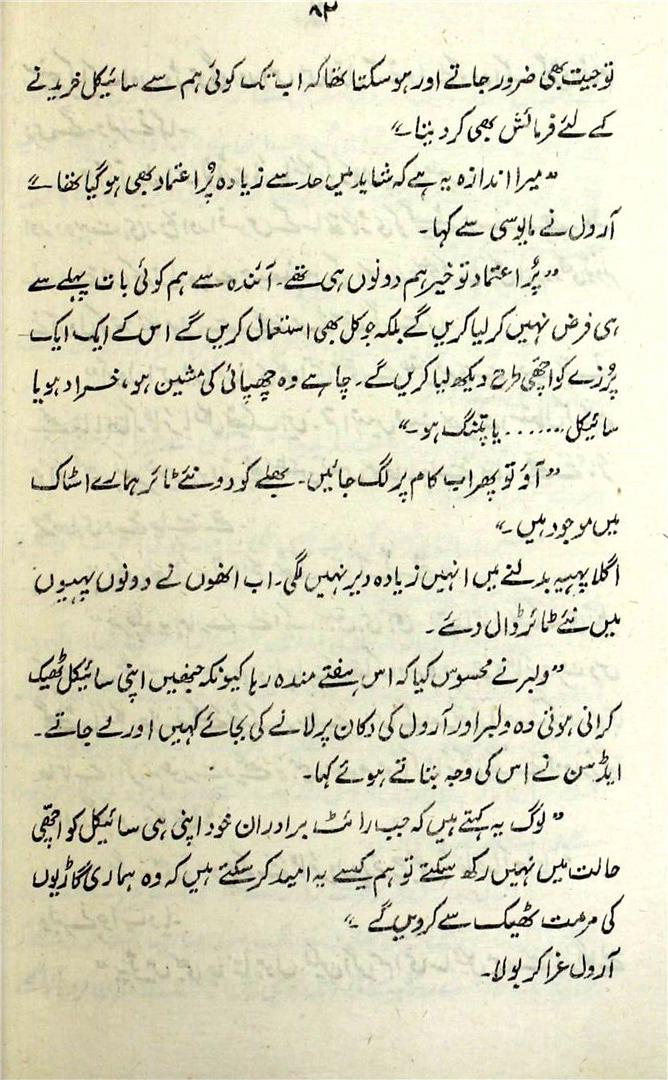 ۸۳
تو جیت بھی ضرور جاتے اور ہو سکتا تھا کہ اب تک کوئی ہم سے سائیکل خریدنے
کے لئے فرمائش بھی کر دیتا۔"
"میرا اندازہ یہ ہے کہ شاید میں حد سے زیادہ پُر اعتماد بھی ہو گیا تھا۔"
آرول نے مایوسی سے کہا۔
"پُر اعتماد تو خیر ہم دونوں ہی تھے۔ آئندہ سے ہم کوئی بات پہلے سے
ہی فرض نہیں کر لیا کریں گے بلکہ جو کل بھی استعمال کریں گے اس کے ایک ایک
پُرزے کو اچھی طرح دیکھ لیا کریں گے۔ چاہے وہ چھپائی کی مشین ہو، خراد ہو یا
سائیکل...... یا پتنگ ہو۔"
"آؤ تو پھر اب کام پر لگ جائیں۔ بھلے کو دو نئے ٹائر ہمارے اسٹاک
میں موجود ہیں۔"
اگلا پہیہ بدلنے میں انہیں زیادہ دیر نہیں لگی۔ اب انھوں نے دونوں پہیوں
میں نئے ٹائر ڈال دئے۔
"ولبر نے محسوس کیا کہ اس ہفتے مندہ رہا کیونکہ جنھیں اپنی سائیکل ٹھیک
کرانی ہوتی وہ ولبر اور آرول کی دکان پر لانے کی بجائے کہیں اور لے جاتے۔
ایڈسن نے اس کی وجہ بتاتے ہوئے کہا۔
"لوگ یہ کہتے ہیں کہ جب رائٹ برادران خود اپنی ہی سائیکل کو اچھی
حالت میں نہیں رکھ سکتے تو ہم کیسے یہ امید کر سکتے ہیں کہ وہ ہماری گاڑیوں
کی مرمت ٹھیک سے کر دیں گے۔"
آرول غرا کر بولا۔